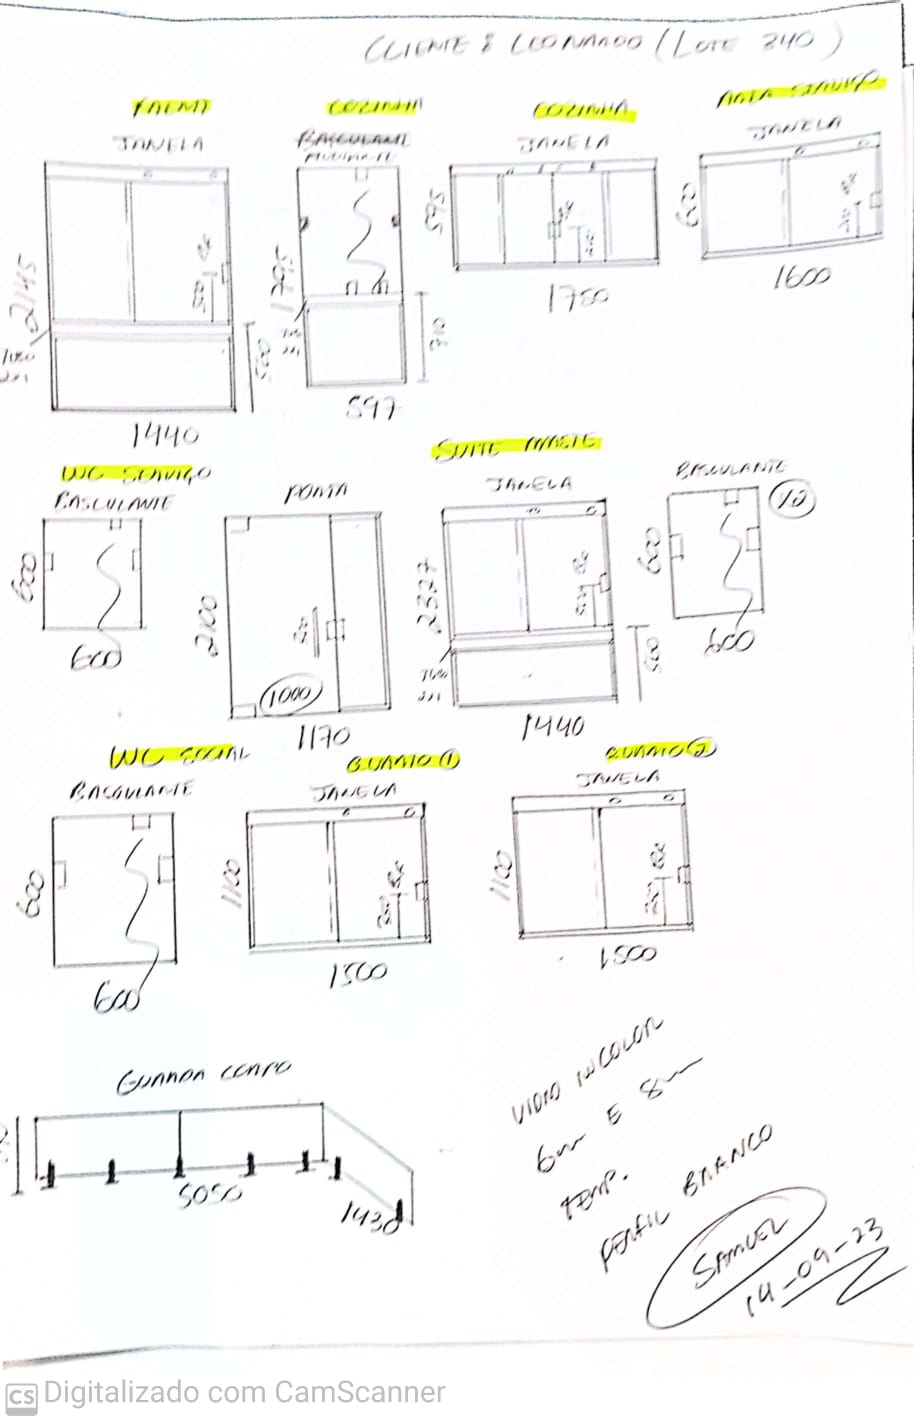 CLIENTE: LEONARDO (LOTE 340)
COZINHA
COZINHA
JANELA
BASCULANTE
JANELA
JANELA
2145
1440
500
1795
597
710
595
1750
600
1600
WC SERVIÇO
SUITE MASTE
BASCULANTE
PORTA
JANELA
BASCULANTE
600
600
2100
1000
1170
2327
1440
500
600
600
WC SOCIAL
QUARTO 1
QUARTO 2
BASCULANTE
JANELA
JANELA
600
600
1100
1500
1100
1500
GUARDA CORPO
5050
1430
VIDRO INCOLOR
6mm E 8mm
TEMP.
PERFIL BRANCO
SAMUEL
14-09-23
CS Digitalizado com CamScanner